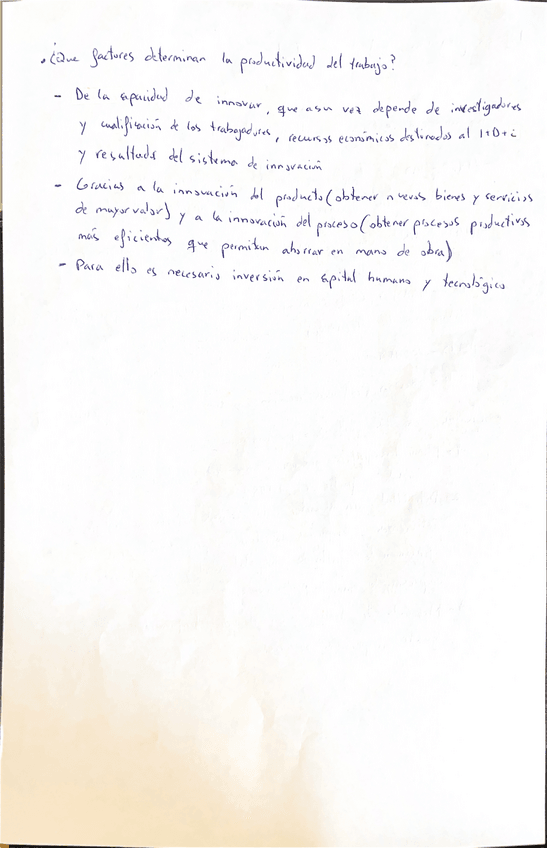 • ¿Que factores determinan la productividad del trabajo?
- De la capacidad de innovar, que a su vez depende de investigadores
y cualificación de los trabajadores, recursos económicos destinados al I+D+i
y resultado del sistema de innovación
- Gracias a la innovación del producto (obtener nuevos bienes y servicios
de mayor valor) y a la innovación del proceso (obtener procesos productivos
más eficientes que permitan ahorrar en mano de obra)
- Para ello es necesario inversión en capital humano y tecnológico